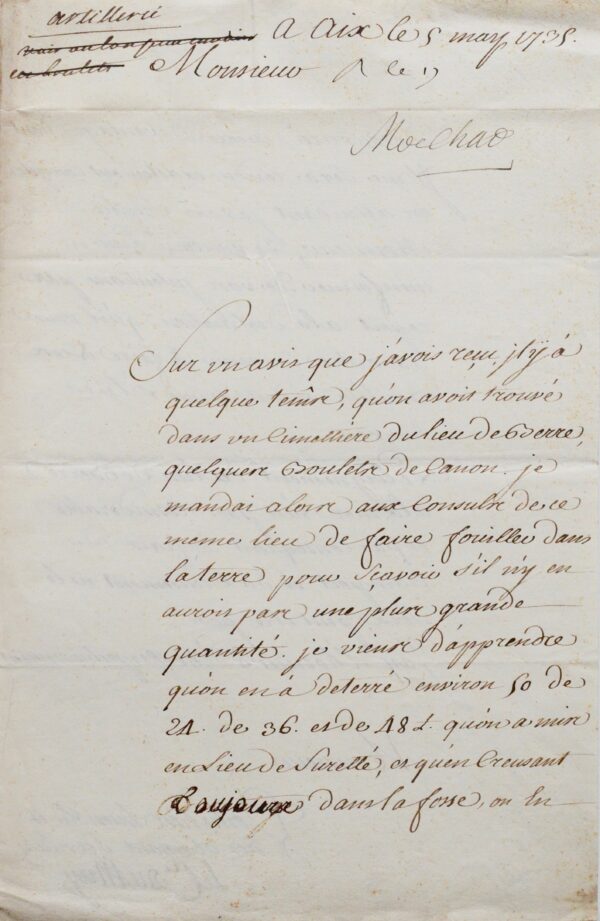 artillerie
A Aix le 5 may 1735.
Monsieur
Sur un avis que j'avois reçu, j'l y à
quelque tems, qu'on avoit trouvé
dans un Cimettière du lieu de Berre,
quelques Boulets de Canon. je
mandai alors aux Consuls de ce
meme lieu de faire fouiller dans
la terre pour sçavoir s'il n'y en
auroit pas une plus grande
quantité. je viens d'apprendre
qu'on en à deterré environ 50 de
24. de 36. et de 48 L. qu'on a mis
en Lieu de Sureté, et qu'en Creusant
Toujours dans la fosse, on en